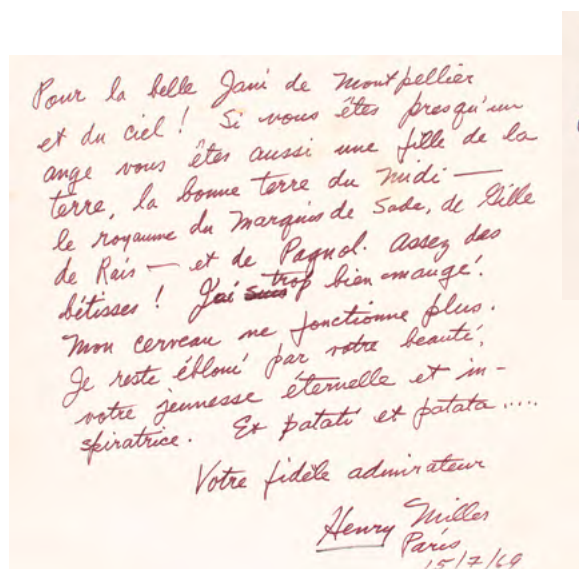 Pour la belle Jani de Montpellier
et du ciel ! Si vous êtes presqu'un
ange vous êtes aussi une fille de la
terre, la bonne terre du Midi —
le royaume du Marquis de Sade, de Gille
de Rais — et de Pagnol. Assez des
bétisses ! J'ai suis trop bien mangé.
Mon cerveau ne fonctionne plus.
Je reste ébloui par votre beauté,
votre jeunesse éternelle et in-
spiratrice. Et patati et patata .....
Votre fidèle admirateur
Henry Miller
Paris
15/7/69